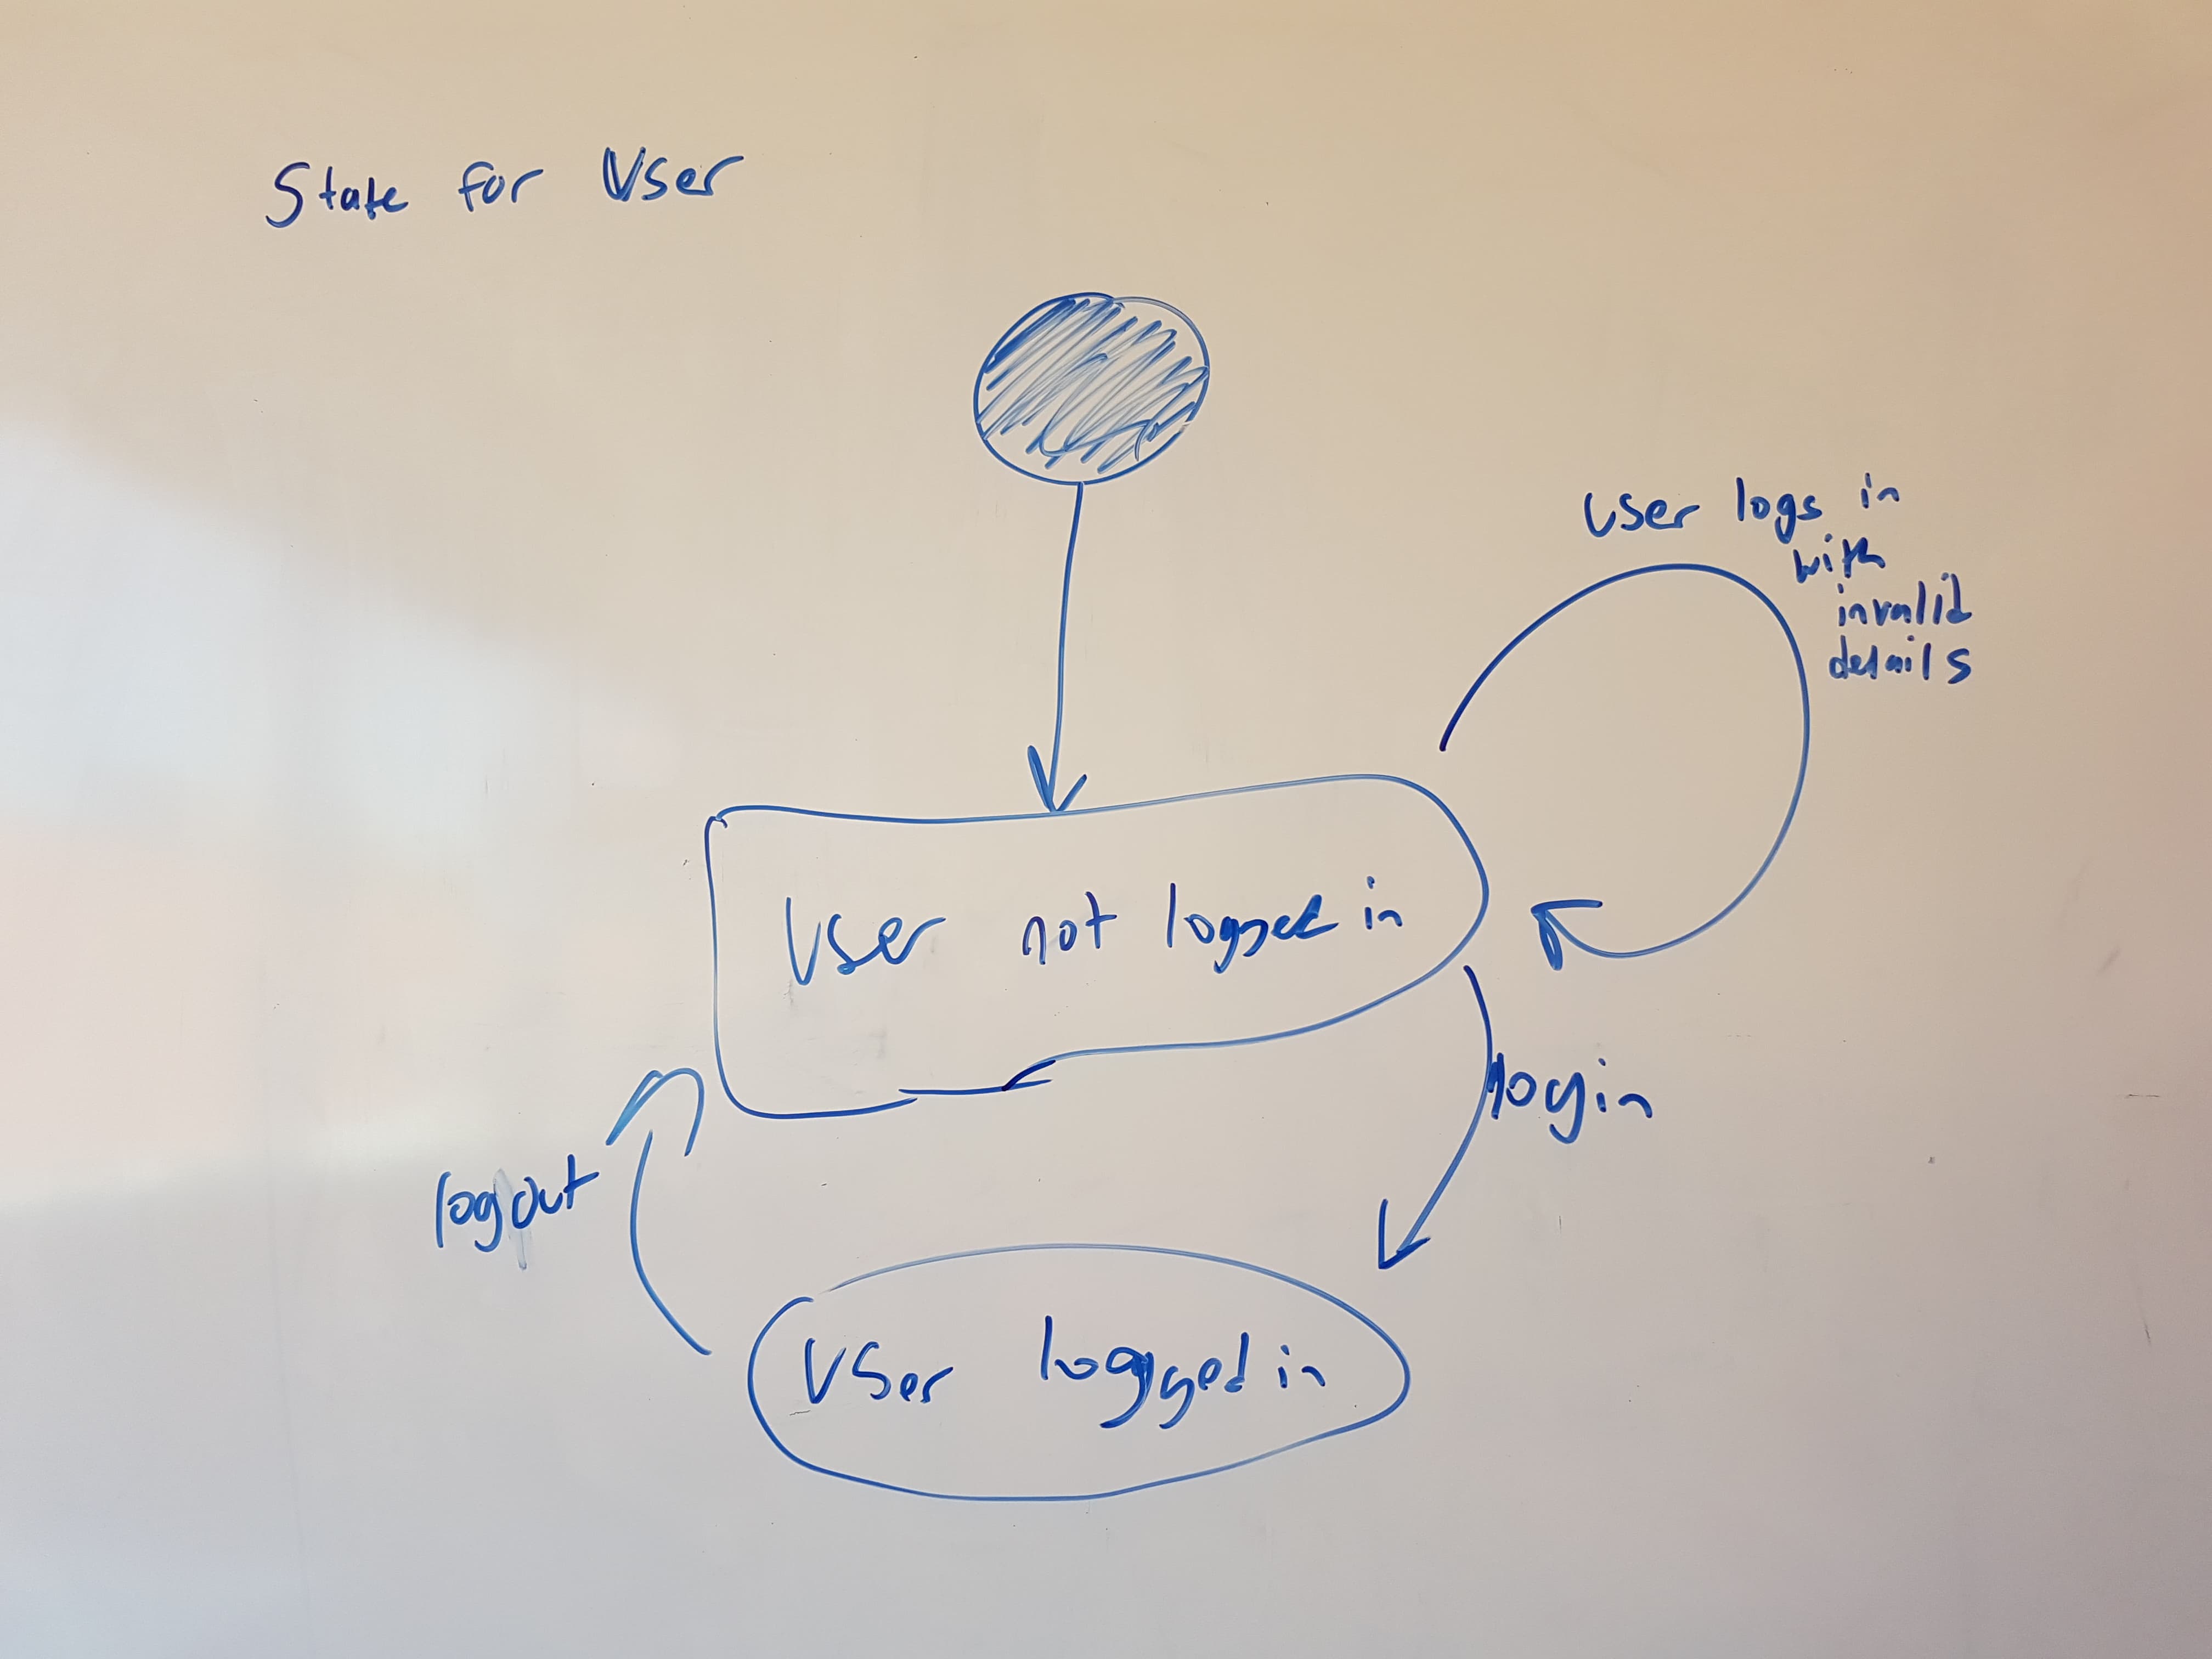 State for User
User logs in
with
invalid
details
User not logged in
login
logout
User logged in